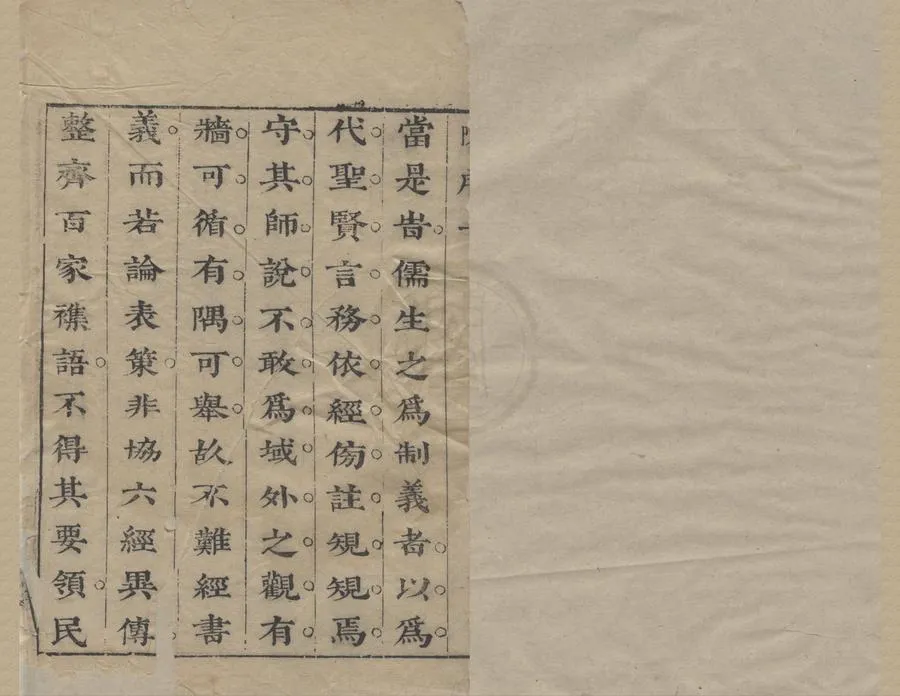 當是旹儒生之爲制義者以爲
代聖賢言務依經傍註規規焉
守其師說不敢爲域外之觀有
牆可循有隅可舉故不難經書
義而若論表策非協六經異傳
整齊百家襍語不得其要領民